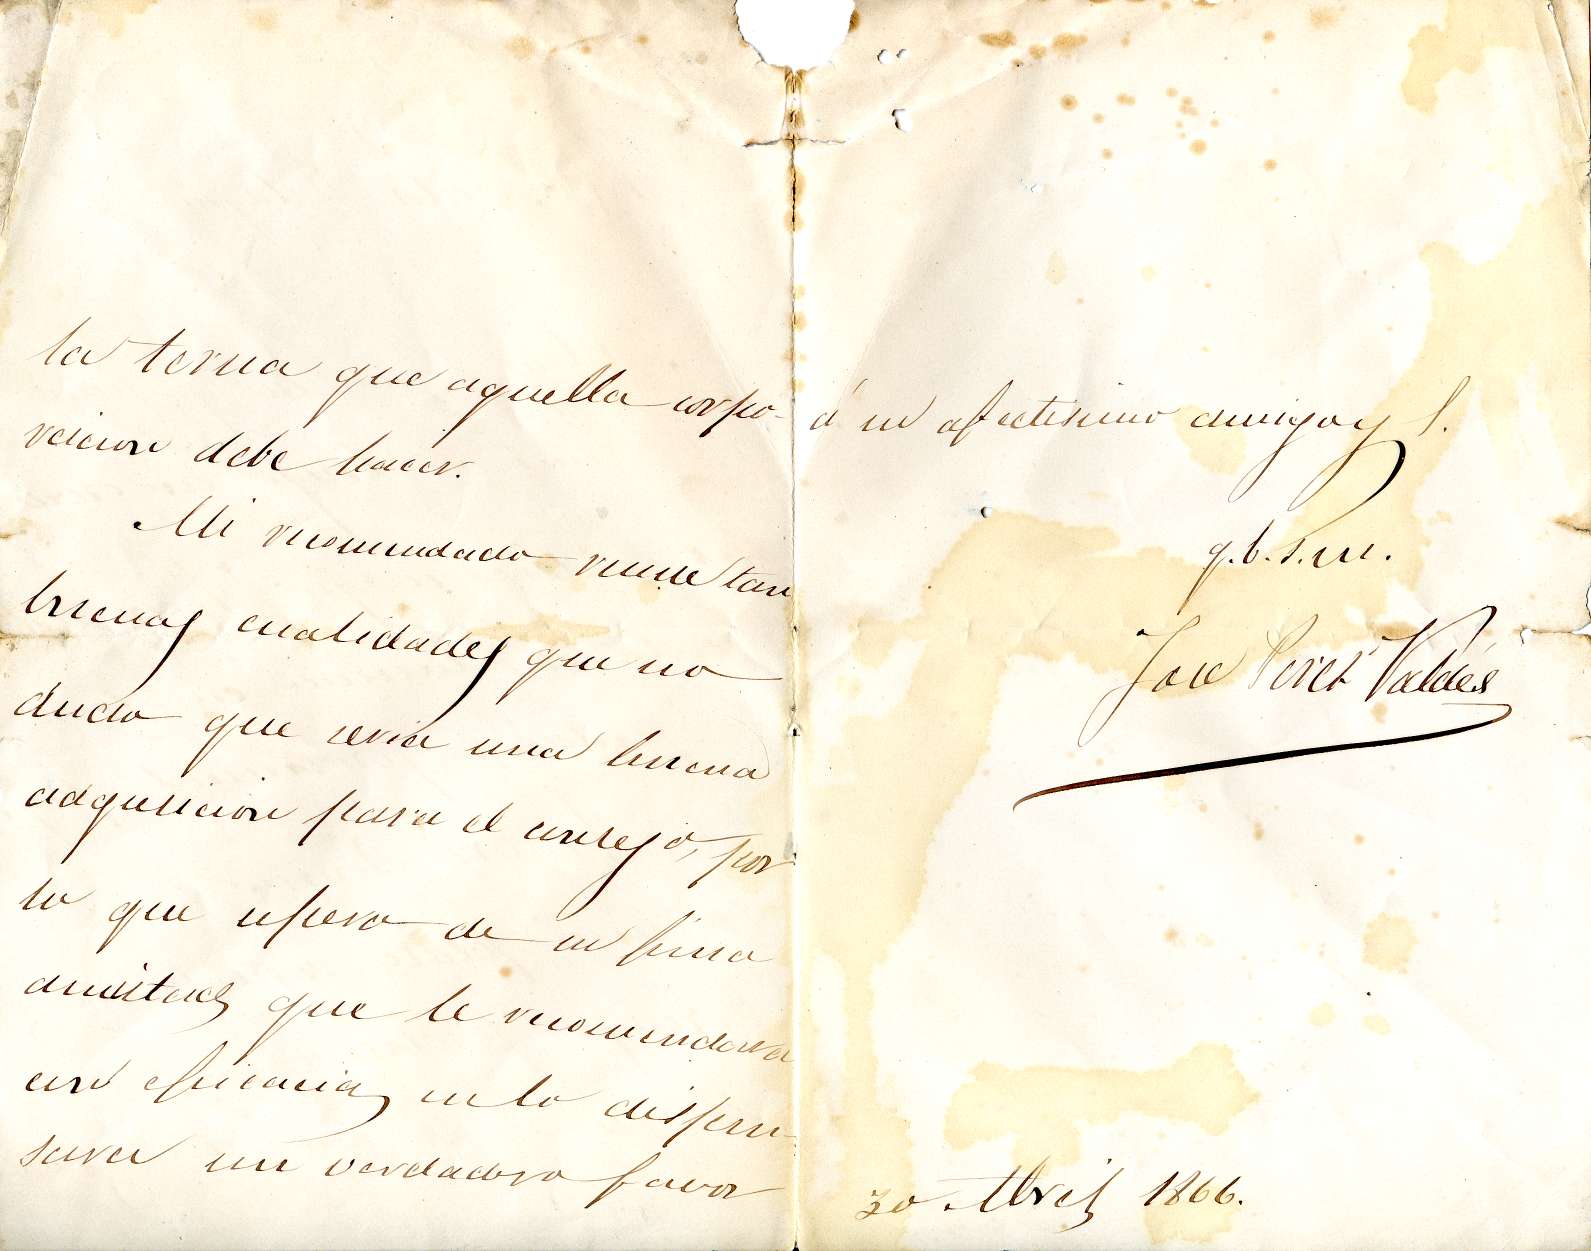 la terna que aquella corpo-
racion debe hacer.
Mi recomendado reune tan
buenas cualidades que no
dudo que seria una buena
adquisicion para el consejo, por
lo que espero de su fina
amistad que le recomendara
con eficacia, en lo dispen-
sara un verdadero favor
á su afectisimo amigo y S.
q.b.s.m.
Jose Perez Valdés
30 Abril 1866.